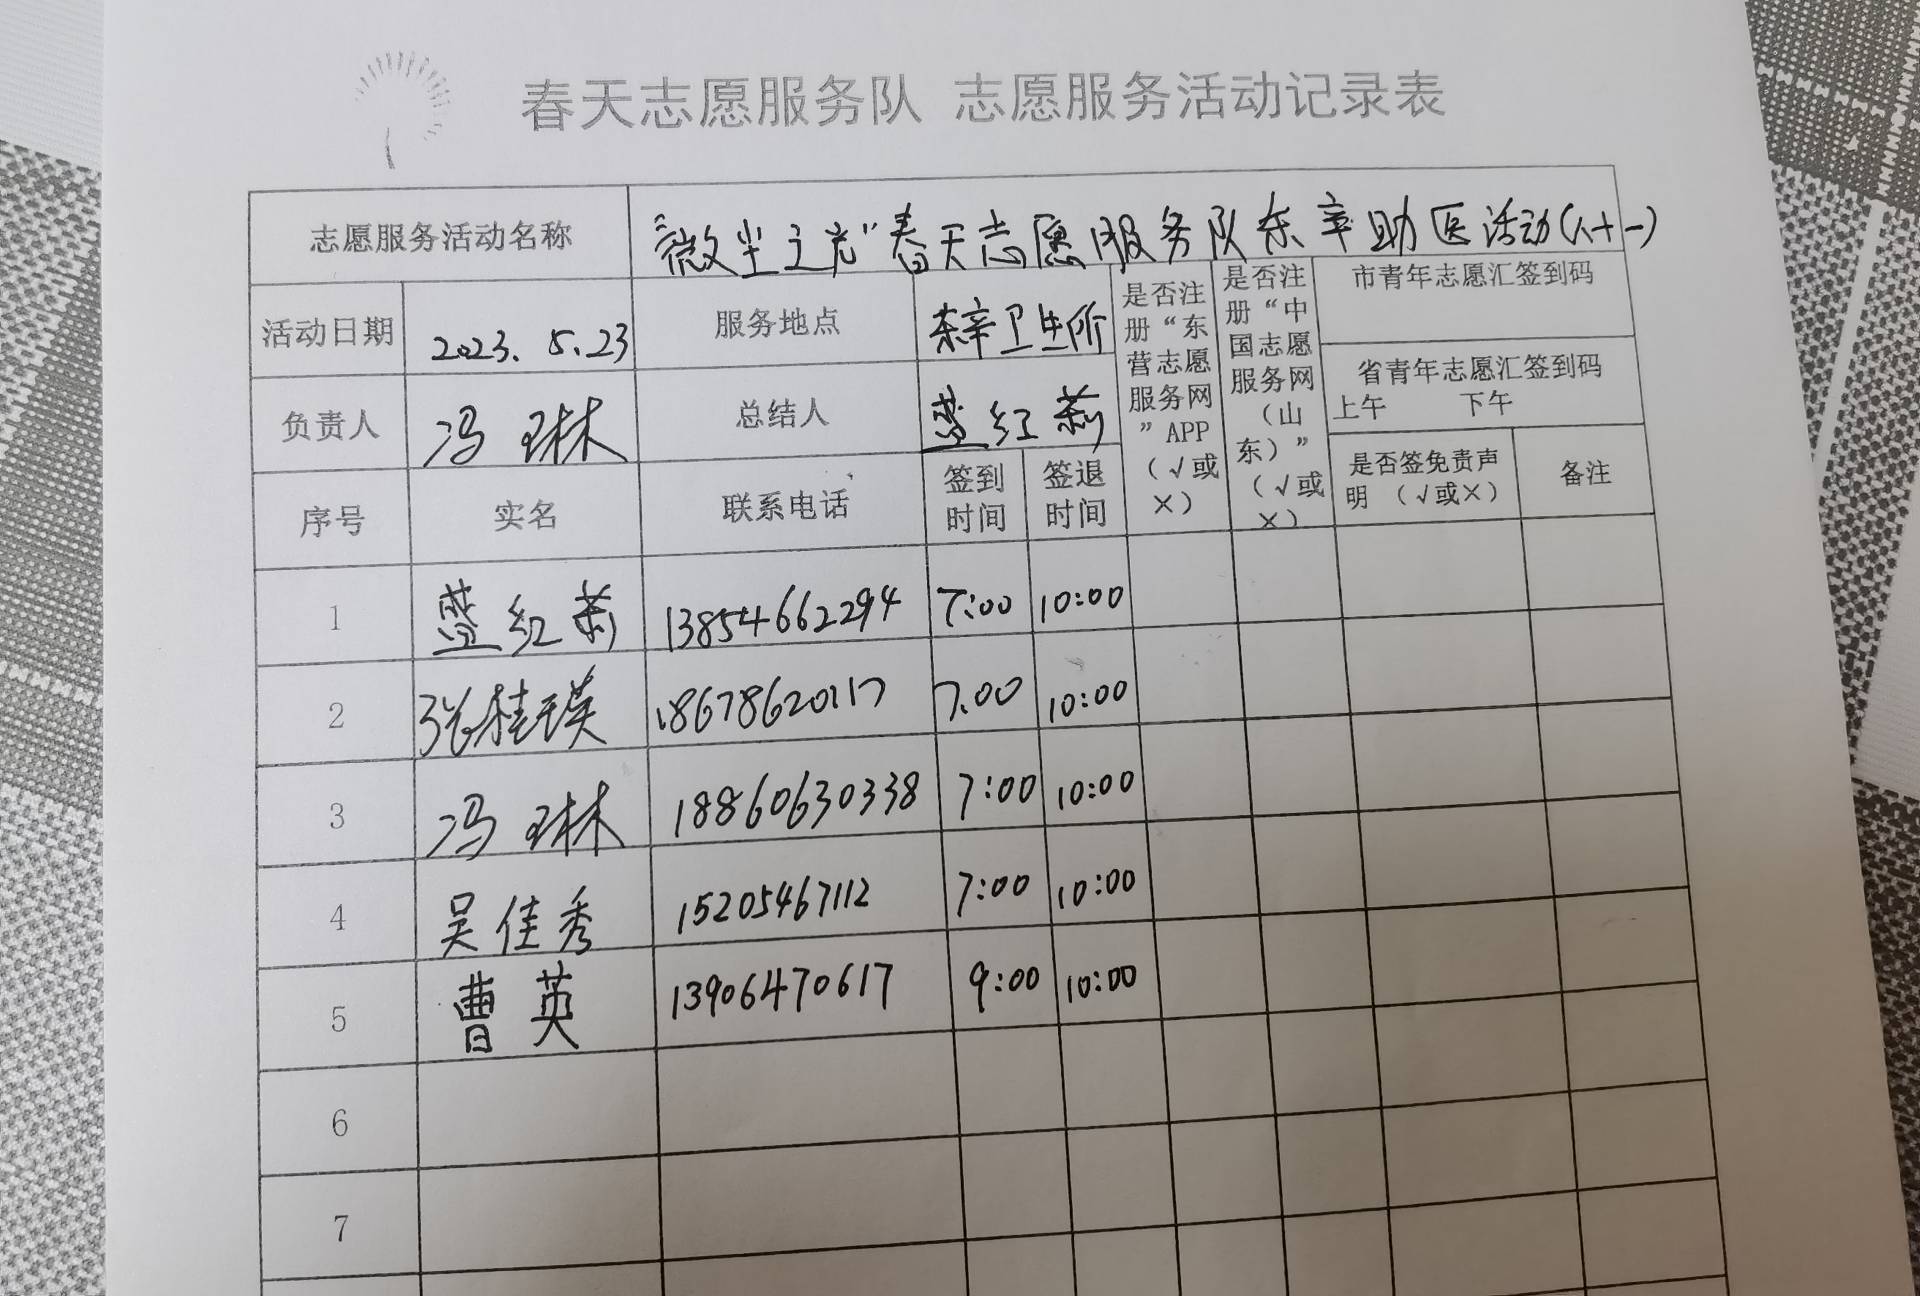 春天志愿服务队 志愿服务活动记录表
志愿服务活动名称 “微尘之光”春天志愿服务队东辛助医活动(八十一)
活动日期 2023.5.23 服务地点 东辛卫生所 是否注册“东营志愿服务网”APP（√或×） 是否注册“中国志愿服务网（山东）”（√或×） 市青年志愿汇签到码
省青年志愿汇签到码
上午 下午
负责人 冯琳 总结人 蓝红莉
序号 实名 联系电话 签到时间 签退时间 是否签免责声明 （√或×） 备注
1 蓝红莉 13854662294 7:00 10:00
2 张桂瑛 18678620117 7:00 10:00
3 冯琳 18860630338 7:00 10:00
4 吴佳秀 15205467112 7:00 10:00
5 曹英 13906470617 9:00 10:00
6
7